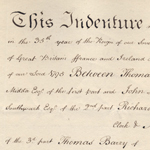 This Indenture
in the 35th year of the Reign of our
of Great Britain Ffrance and Ireland
of our Lord 1795 Between Thomas
Middx Esqr of the first part and John
Southwark Esqr of the 2nd part Richard
Clerk &
of the 3d part Thomas Barry of